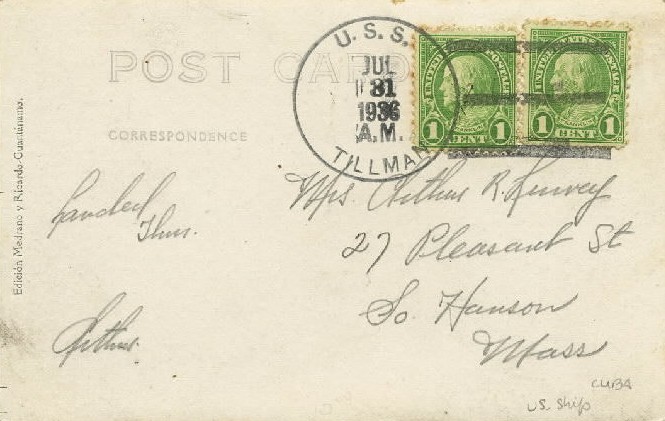 POST CARD
CORRESPONDENCE
U. S. S. TILLMAN
JUL
31
1936
A.M.
UNITED STATES POSTAGE
1 CENT 1
UNITED STATES POSTAGE
1 CENT 1
Edición Medrano y Ricardo-Guantánamo.
Landed
Thurs.
Arthur.
Mrs. Arthur R.
27 Pleasant St
So. Hanson
Mass
CUBA
US. Ship